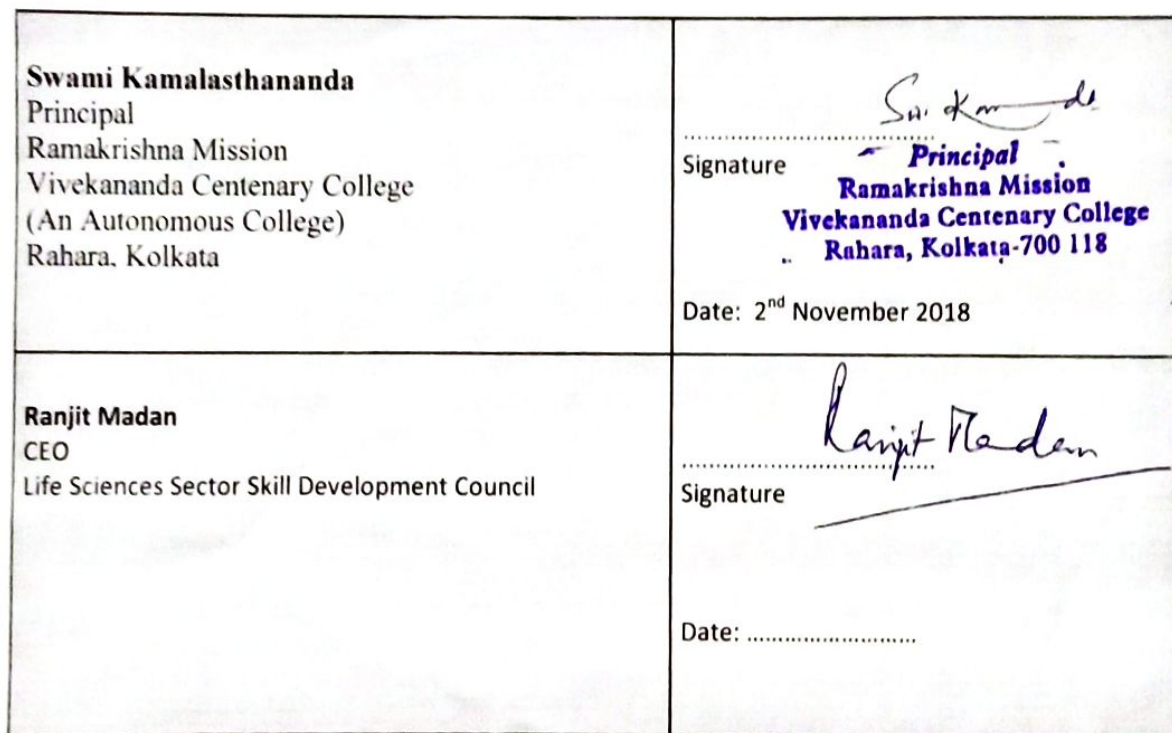 Swami Kamalasthananda
Principal
Ramakrishna Mission
Vivekananda Centenary College
(An Autonomous College)
Rahara, Kolkata
Signature
Principal
Ramakrishna Mission
Vivekananda Centenary College
Rahara, Kolkata-700 118
Date: 2nd November 2018
Ranjit Madan
CEO
Life Sciences Sector Skill Development Council
Ranjit Madan
..............................
Signature
Date: ..........................